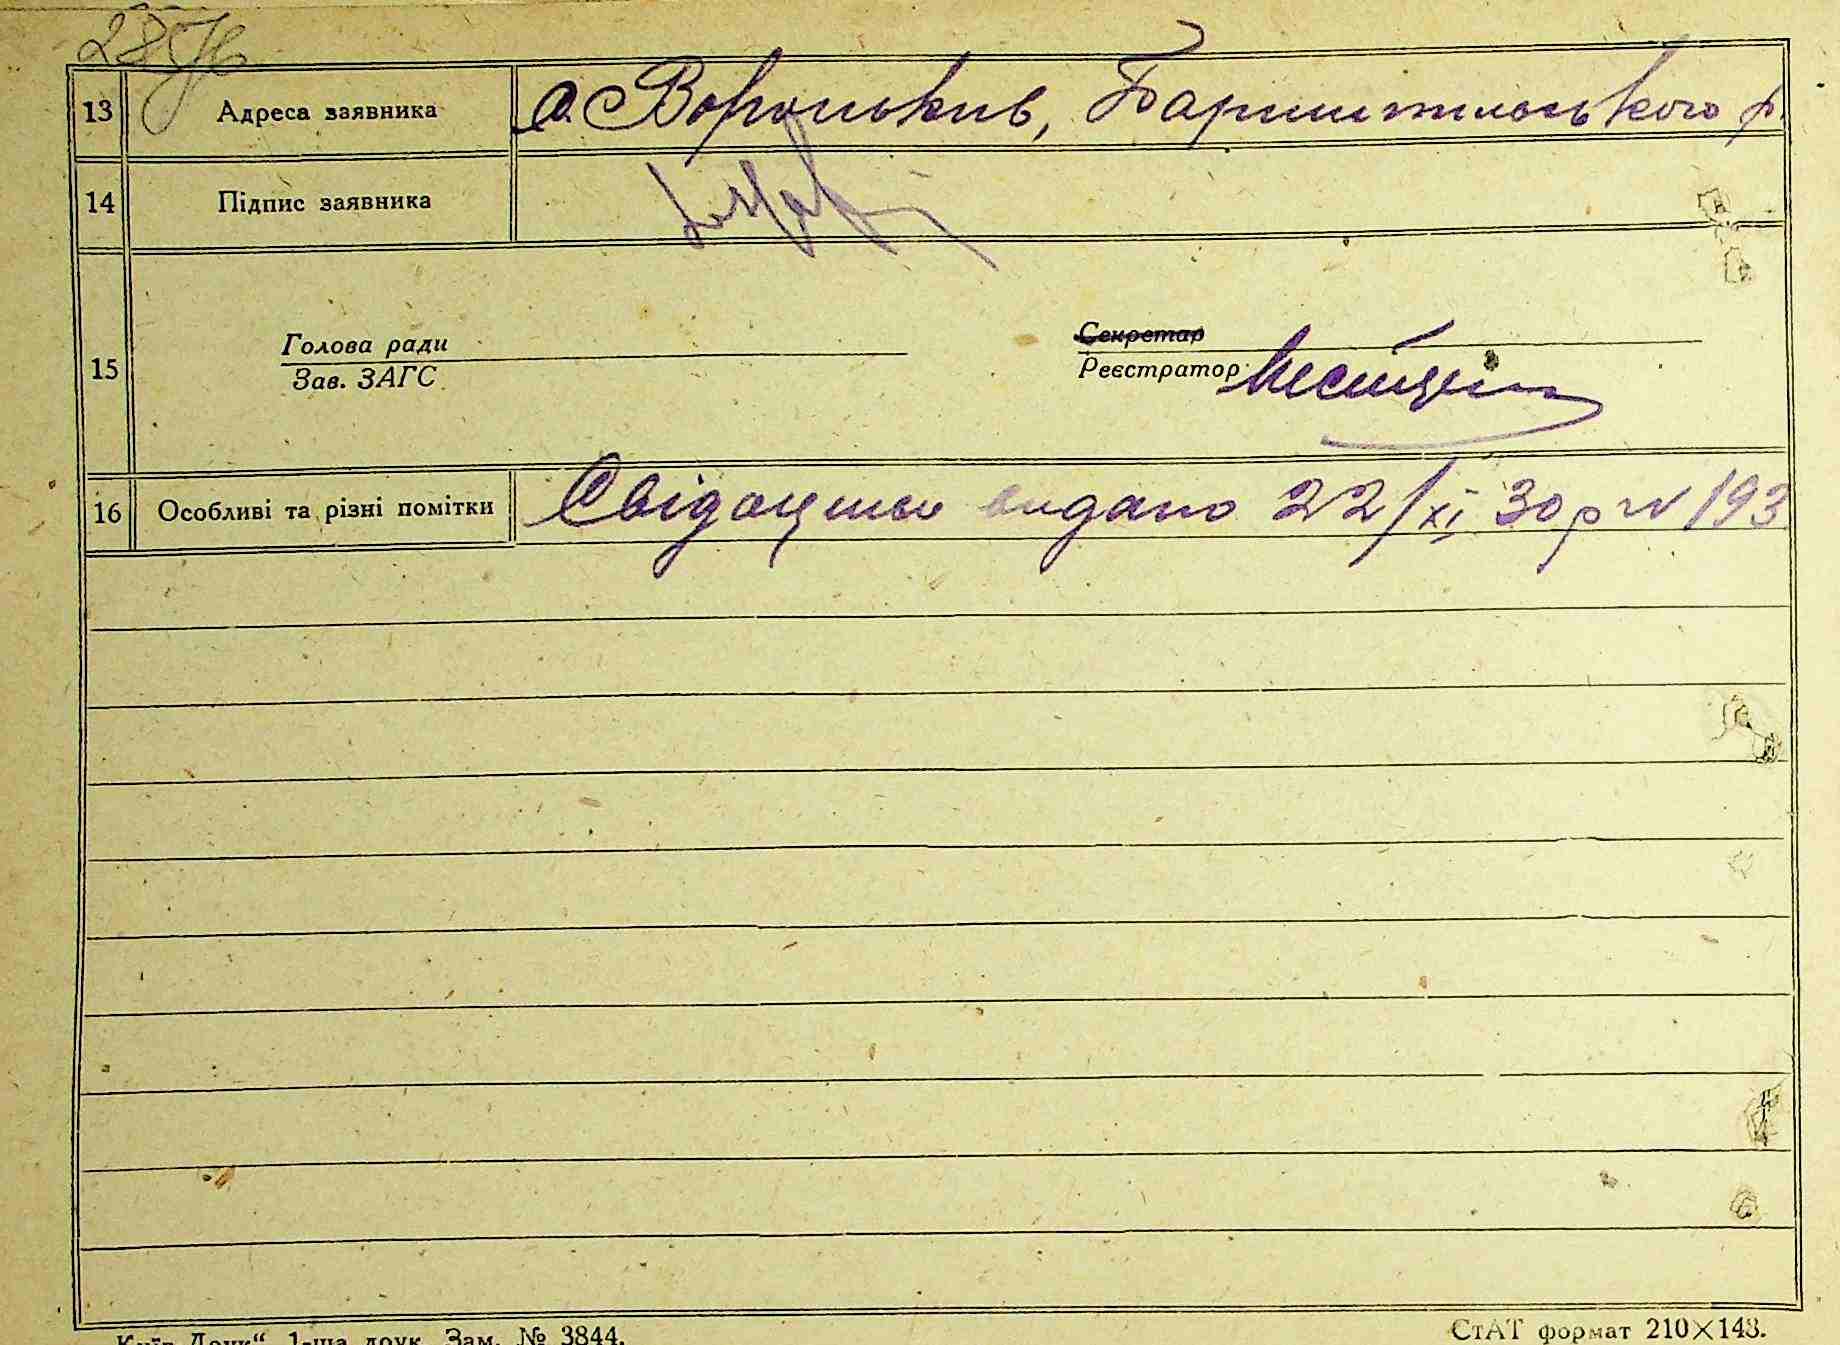 13 Адреса заявника с. Вороньків, Баришпільського р.
14 Підпис заявника
15 Голова ради Секретар
Зав. ЗАГС Реєстратор
16 Особливі та різні помітки Свідоцтво видано 22/XI 30 р № 193
Київ-Друк“ 1-ша друк. Зам. № 3844. СтАТ формат 210×148.